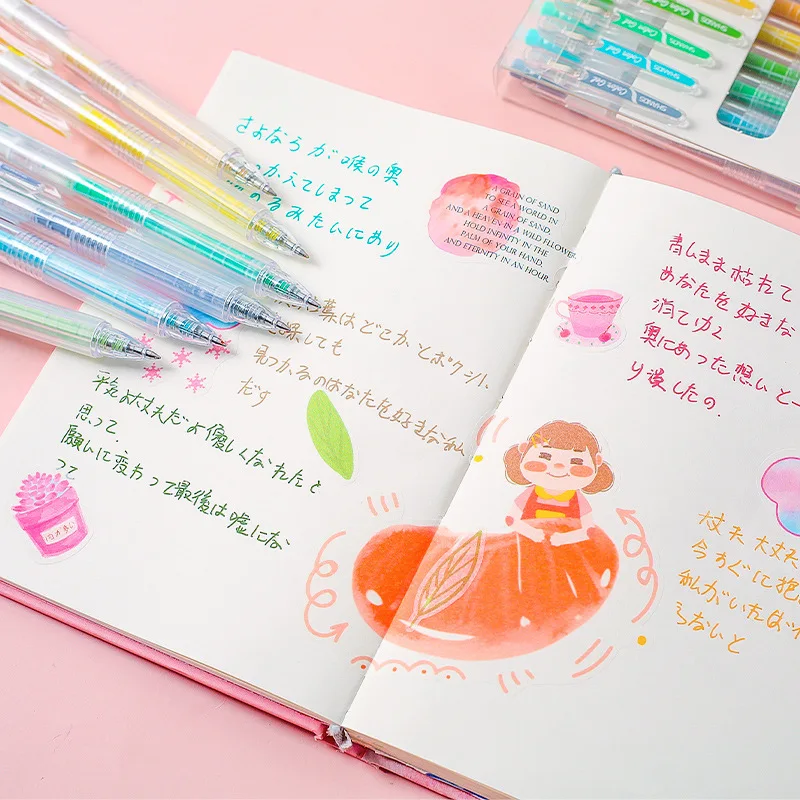 さよならが喉の奥
っかえてしまって
るみたいにあり
葉はどこかとポケット
しても
見つかるのはあなたを好きな私
だけ
平気よ大丈夫だよ優しくなれたと
思って.
願いに変わって最後は嘘にな
って
A GRAIN OF SAND
TO SEE A WORLD IN
A GRAIN OF SAND,
AND A HEAVEN IN A WILD FLOWER
HOLD INFINITY IN THE
PALM OF YOUR HAND,
AND ETERNITY IN AN HOUR.
青しまま枯れて
あなたを好きな
消てゆく
奥にあった想いと一
り潰したの.
大丈夫 大丈夫
今すぐに抱
私がいたは
らないと
Color Gel SHANDS
Color Gel SHANDS
Color Gel SHANDS
Color Gel SHANDS